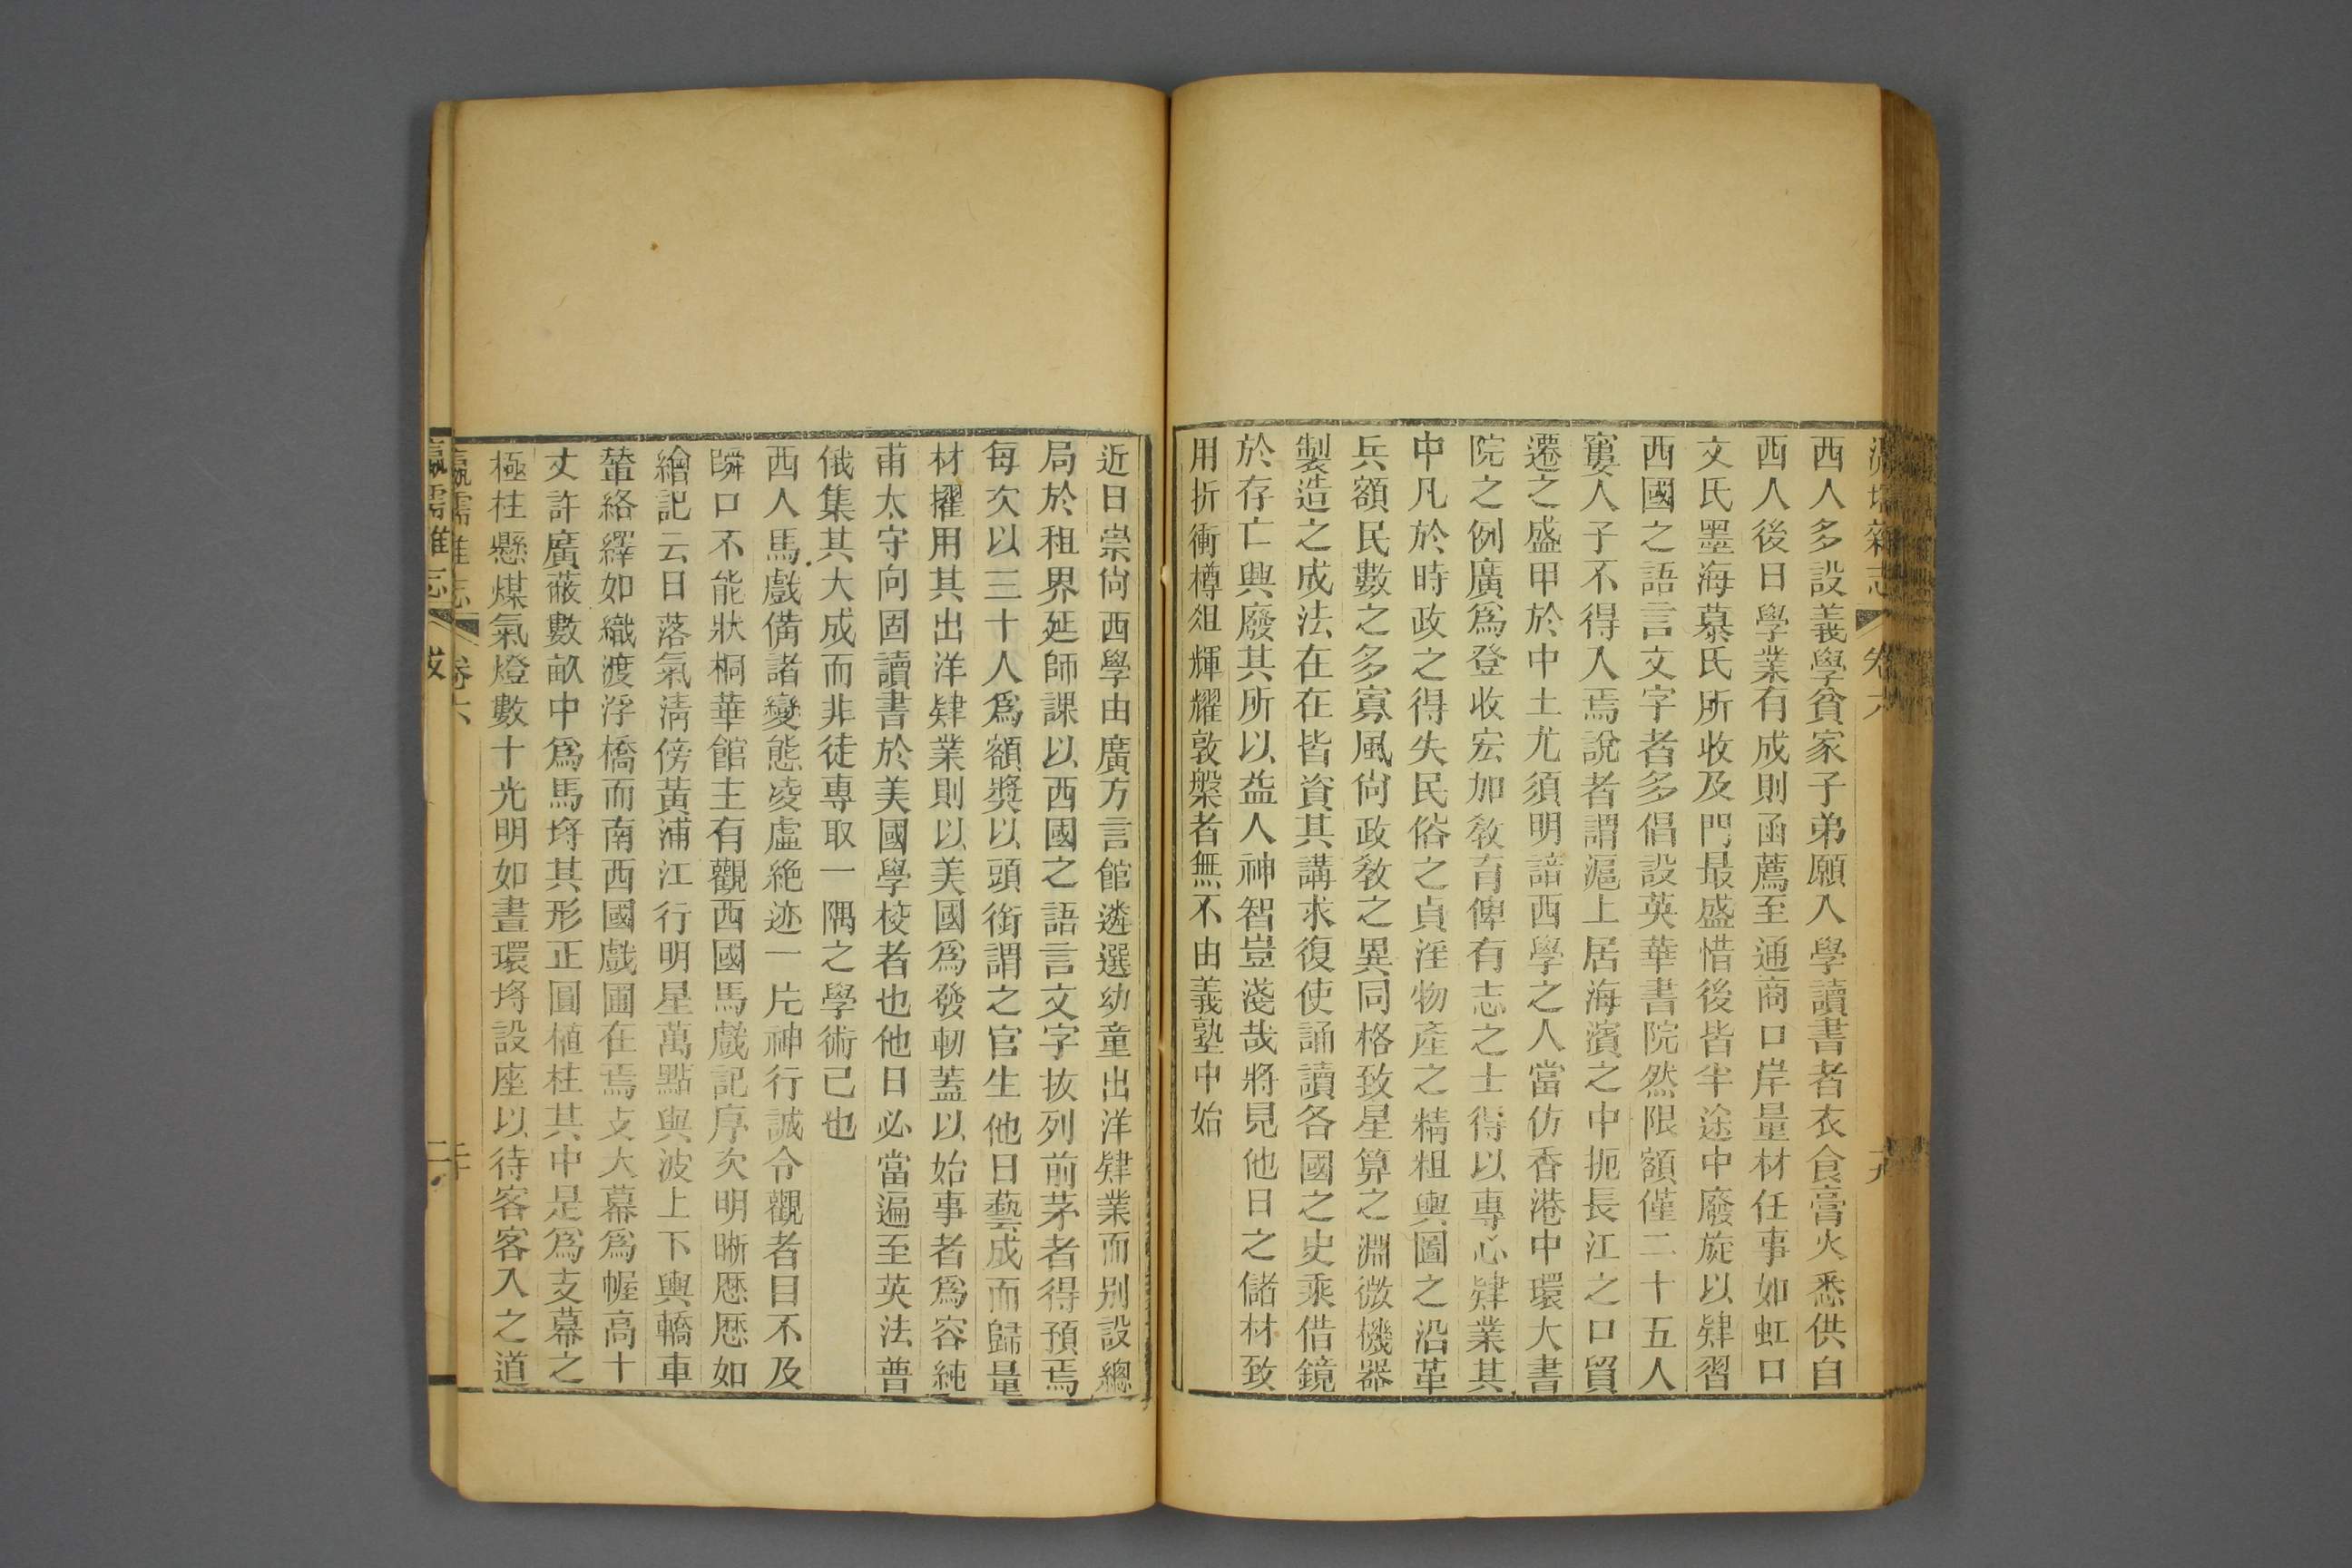 卷六
西人多設義學貧家子弟願入學讀書者衣食膏火悉供自
西人後日學業有成則函薦至通商口岸量材任事如虹口
文氏墨海慕氏所收及門最盛惜後皆半途中廢旋以肄習
西國之語言文字者多倡設英華書院然限額僅二十五人
窶人子不得入焉說者謂滬上居海濱之中扼長江之口貿
遷之盛甲於中土尤須明諳西學之人當仿香港中環大書
院之例廣爲登收宏加敎育俾有志之士得以專心肄業其
中凡於時政之得失民俗之貞淫物產之精粗輿圖之沿革
兵額民數之多寡風尙政敎之異同格致星算之淵微機器
製造之成法在在皆資其講求復使誦讀各國之史乘借鏡
於存亡興廢其所以益人神智豈淺哉將見他日之儲材致
用折衝樽俎輝耀敦槃者無不由義塾中始
近日崇尙西學由廣方言館遴選幼童出洋肄業而別設總
局於租界延師課以西國之語言文字拔列前茅者得預焉
每次以三十人爲額獎以頭銜謂之官生他日藝成而歸量
材擢用其出洋肄業則以美國爲發軔蓋以始事者爲容純
甫太守向固讀書於美國學校者也他日必當遍至英法普
俄集其大成而非徒專取一隅之學術已也
西人馬戲備諸變態凌虛絶迹一片神行誠令觀者目不及
瞬口不能狀桐華館主有觀西國馬戲記序次明晰歷歷如
繪記云日落氣淸傍黃浦江行明星萬點與波上下輿轎車
輦絡繹如織渡浮橋而南西國戲圃在焉支大幕爲幄高十
丈許廣蔽數畝中爲馬埒其形正圓植柱其中是爲支幕之
極柱懸煤氣燈數十光明如晝環埒設座以待客客入之道
瀛壖雜志
卷六
二十